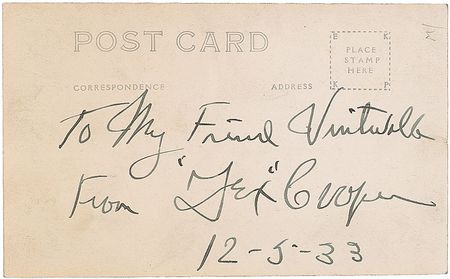 POST CARD
CORRESPONDENCE
ADDRESS
E K
PLACE
STAMP
HERE
K P
To My Friend
From "Tex" Cooper
12-5-33